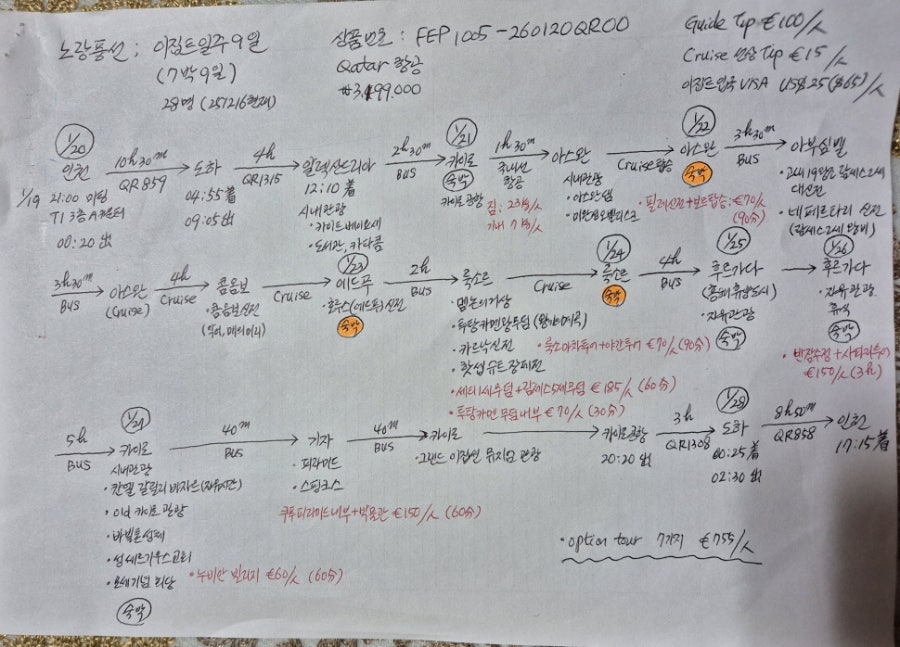 노랑풍선 : 이집트일주 9일
(7박9일)
28명 (251216현재)
상품번호 : FEP1005-260120QR00
Qatar 항공
₩3,199.000
Guide Tip €100/人
Cruise 선상 Tip €15/人
이집트입국 VISA US$ 25($65)/人
1/20 1/21 1/22
인천 10h30m QR859 도하 4h QR1315 알렉산드리아 2h30m BUS 카이로 1h30m 국내선 항공 아스완 Cruise탑승 아스완 3h30m BUS 아부심벨
1/19 21:00 미팅
T1 3층 A카운터
00:20 出
04:55 着
09:05 出
12:10 着
시내관광
• 카이트베이요새
• 도서관, 카타콤
숙박
카이로 공항
짐 : 23kg/人
기내 7kg/人
시내관광
• 아스완댐
• 미완성오벨리스크
숙박
• 필레신전+보트탑승 : €70/人
(90분)
• 2세 19왕조 람세스2세
대신전
• 네페르타리 신전
(람세스2세 왕비)
1/23 1/24 1/25 1/26
3h30m BUS 아스완 4h Cruise 콤옴보 Cruise 에드푸 2h BUS 룩소르 Cruise 룩소르 4h BUS 후르가다 후르가다
(Cruise)
• 콤옴보신전
• 호루스(에드푸)신전
숙박
• 멤논의거상
• 투탕카멘왕무덤
• 카르낙신전
• 핫셉슈트 장제전
숙박
• 룩소마차투어+야간투어 €70/人(90분)
• 세티1세무덤+람세스5세무덤 €185/人 (60分)
• 투탕카멘 무덤내부 €70/人 (30分)
(홍해 휴양도시)
• 자유관광
숙박
• 자유관광
휴식
숙박
• 반잠수정+사파리투어
€150/人 (3h)
1/27 1/28
5h BUS 카이로 40m BUS 기자 40m BUS 카이로 카이로공항 3h QR1308 도하 8h50m QR858 인천
시내관광
• 칸엘 칼릴리 바자르(자유시간)
• 이너 카이로 관광
• 바빌론성채
• 성 세르기우스교회
• 모세기념 회당
숙박
• 누비안 빌리지 €60/人 (60分)
• 피라미드
• 스핑크스
쿠푸피라미드내부+박물관 €150/人 (60分)
• 그랜드 이집션 뮤지엄 관광
20:20 出
00:25 着
02:30 出
17:15 着
• option tour 7가지 €755/人